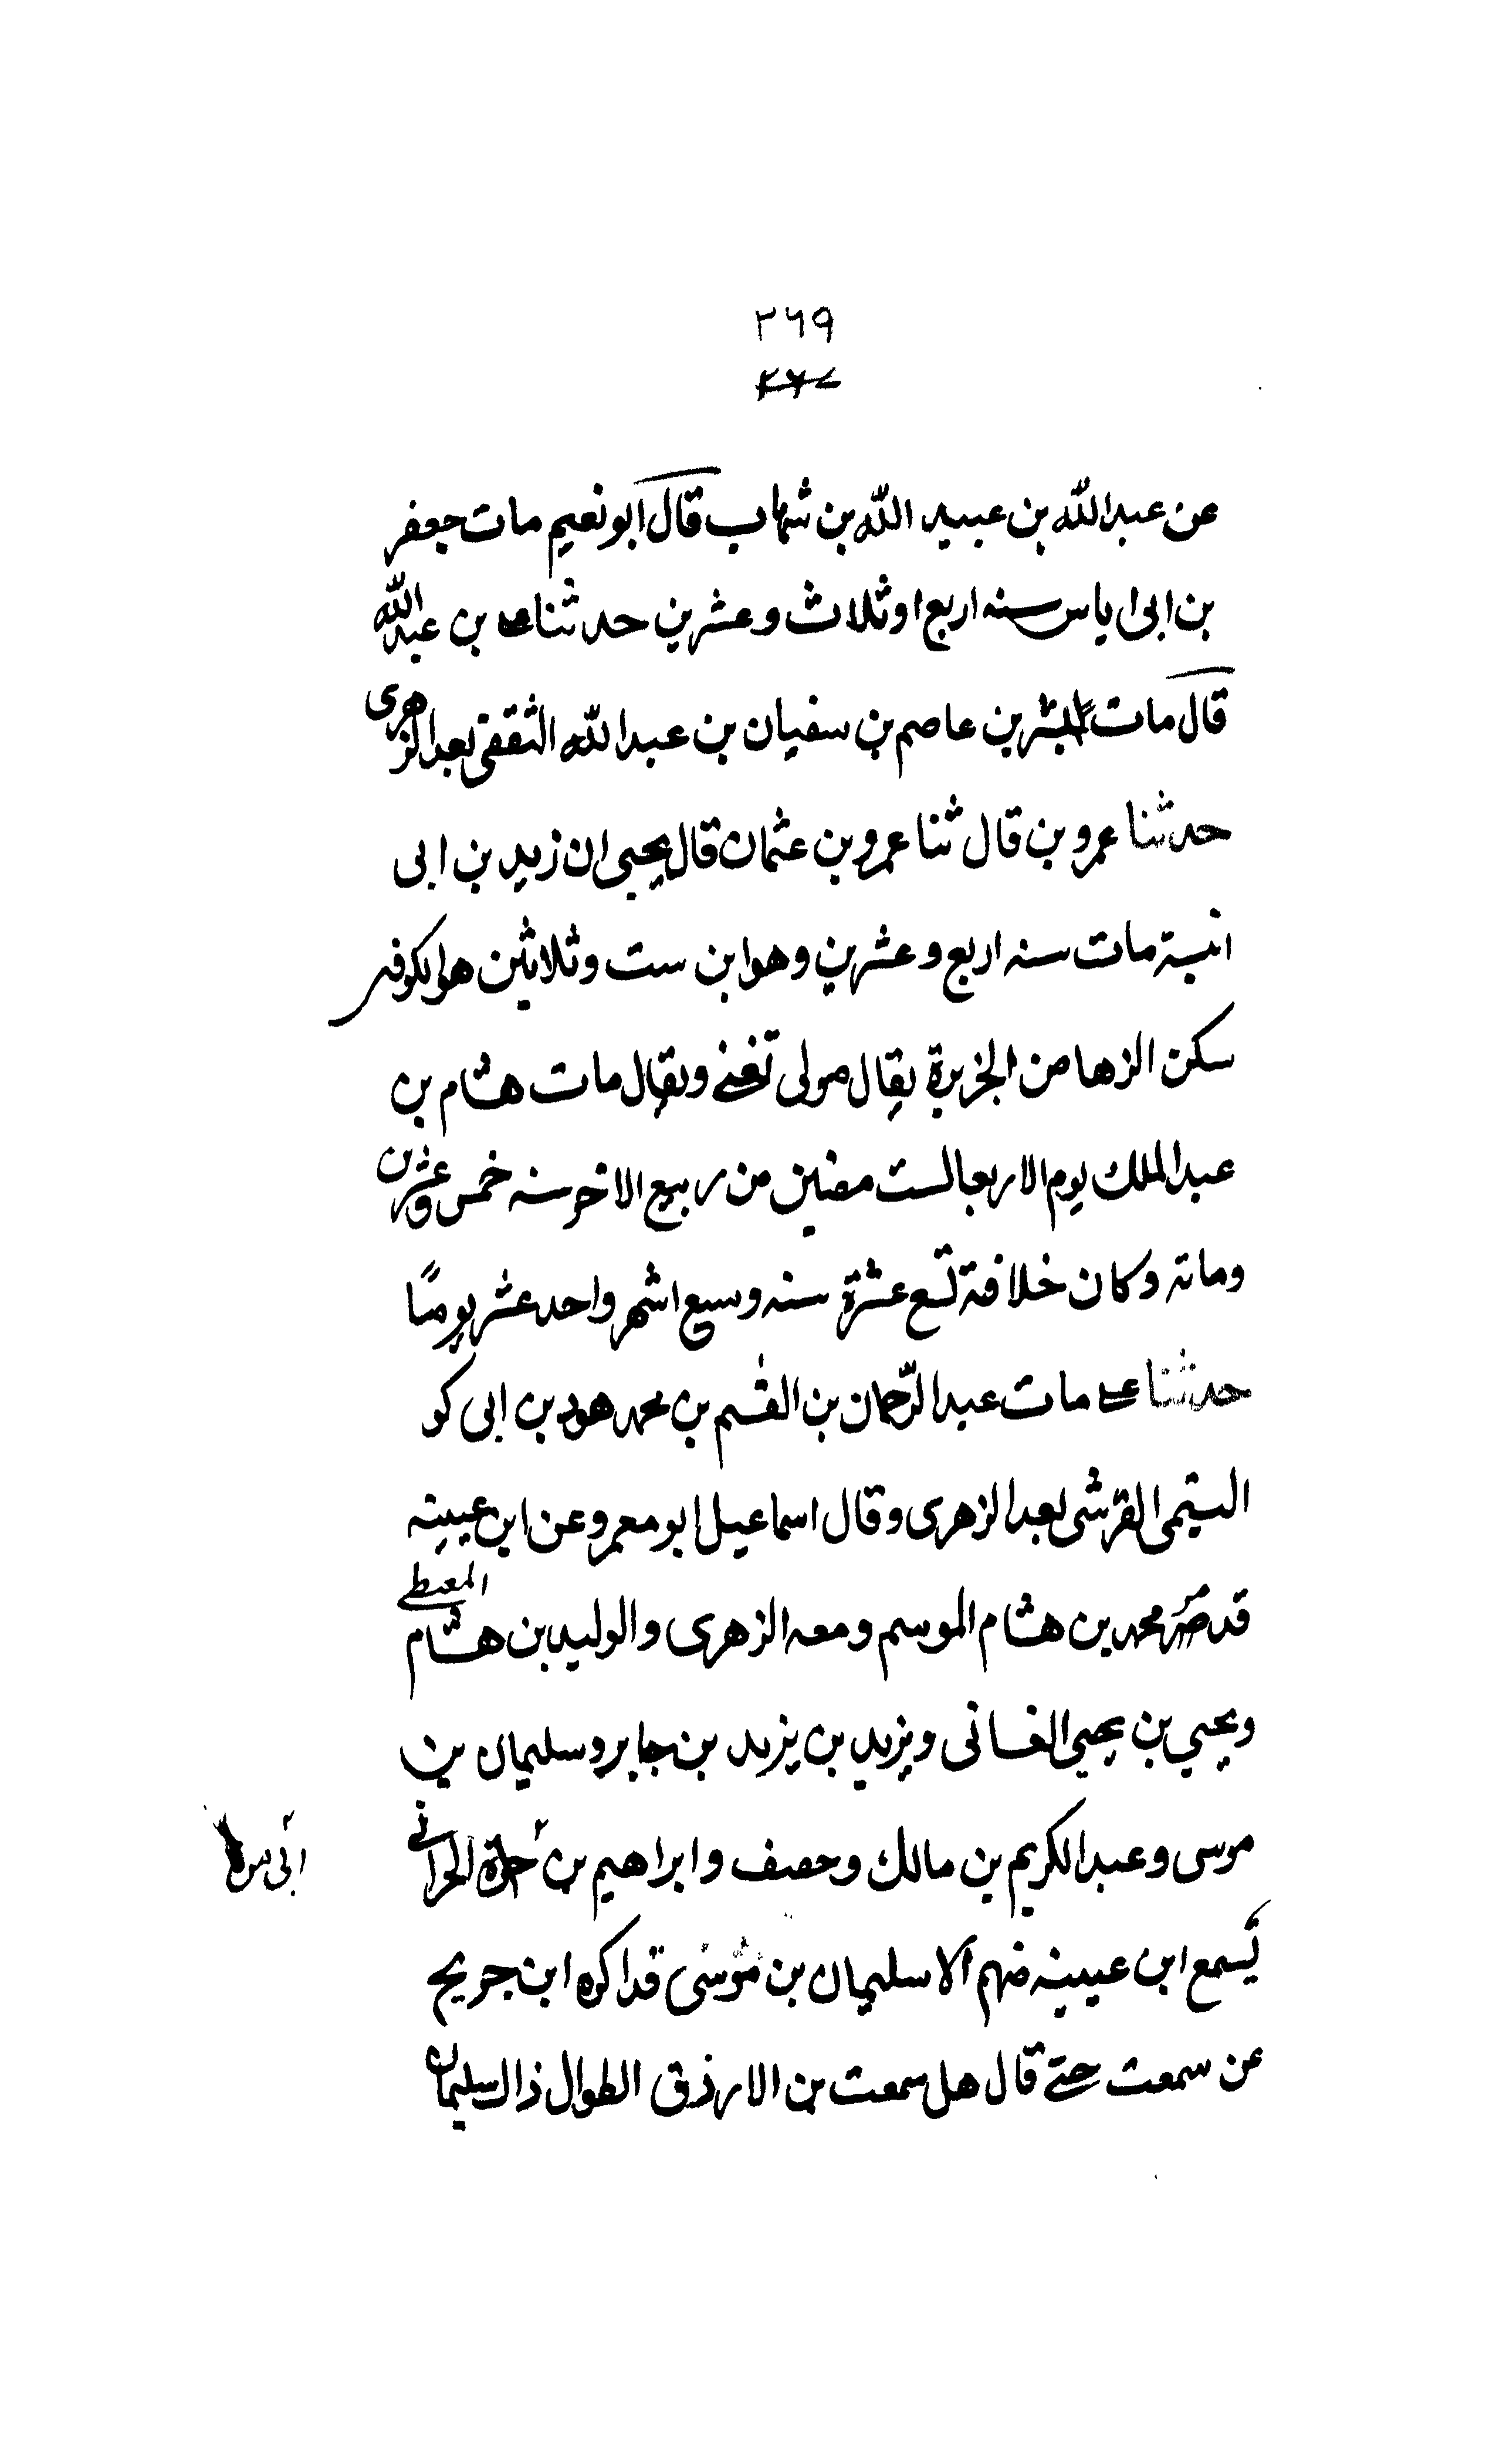 ٢٦٩
٢٦٧
عن عبدالله بن عبيد الله بن شهاب قال ابونعيم مات جعفر
بن ابى اياس سنه اربع اوثلاث وعشرين حدثنا على بن عبدالله
قال مات بشر بن عاصم بن سفيان بن عبدالله الثقفى بعدالزهرى
حدثنا عمرو بن قال ثنا عمرو بن عثمان قال يحيى ان زيد بن ابى
انيسة مات سنه اربع وعشرين وهوابن ست وثلاثين هوالكوفى
سكن الرها من الجزيرة يقال مولى لغنى ويقال مات هشام بن
عبدالملك يوم الاربعا لست مضين من ربيع الاخر سنه خمس وعشرين
ومائه وكان خلافة تسع عشرة سنه وسبع اشهر واحد عشر يومًا
حدثنا على مات عبدالرّحمان بن القٰسم بن محمد هو بن ابى
التيمى القرشى بعدالزهرى وقال اسماعيل ابو معمر وعن ابن عيينه
قدم محمد بن هشام الموسم ومعه الزهرى والوليد بن هشام المعيطى
ويحيى بن يحيى الغسانى ويزيد بن يزيد بن جابر وسليمان بن
موسى وعبدالكريم بن مالك وخصيف وابراهيم بن حرة الحرانى
ابى
يسمع ابن عيينه منهم الا سليمان بن موسى قداكره ابن جريج
عن سمعت حتى قال هل سمعت من الارزق الطوال ذاك سليمان